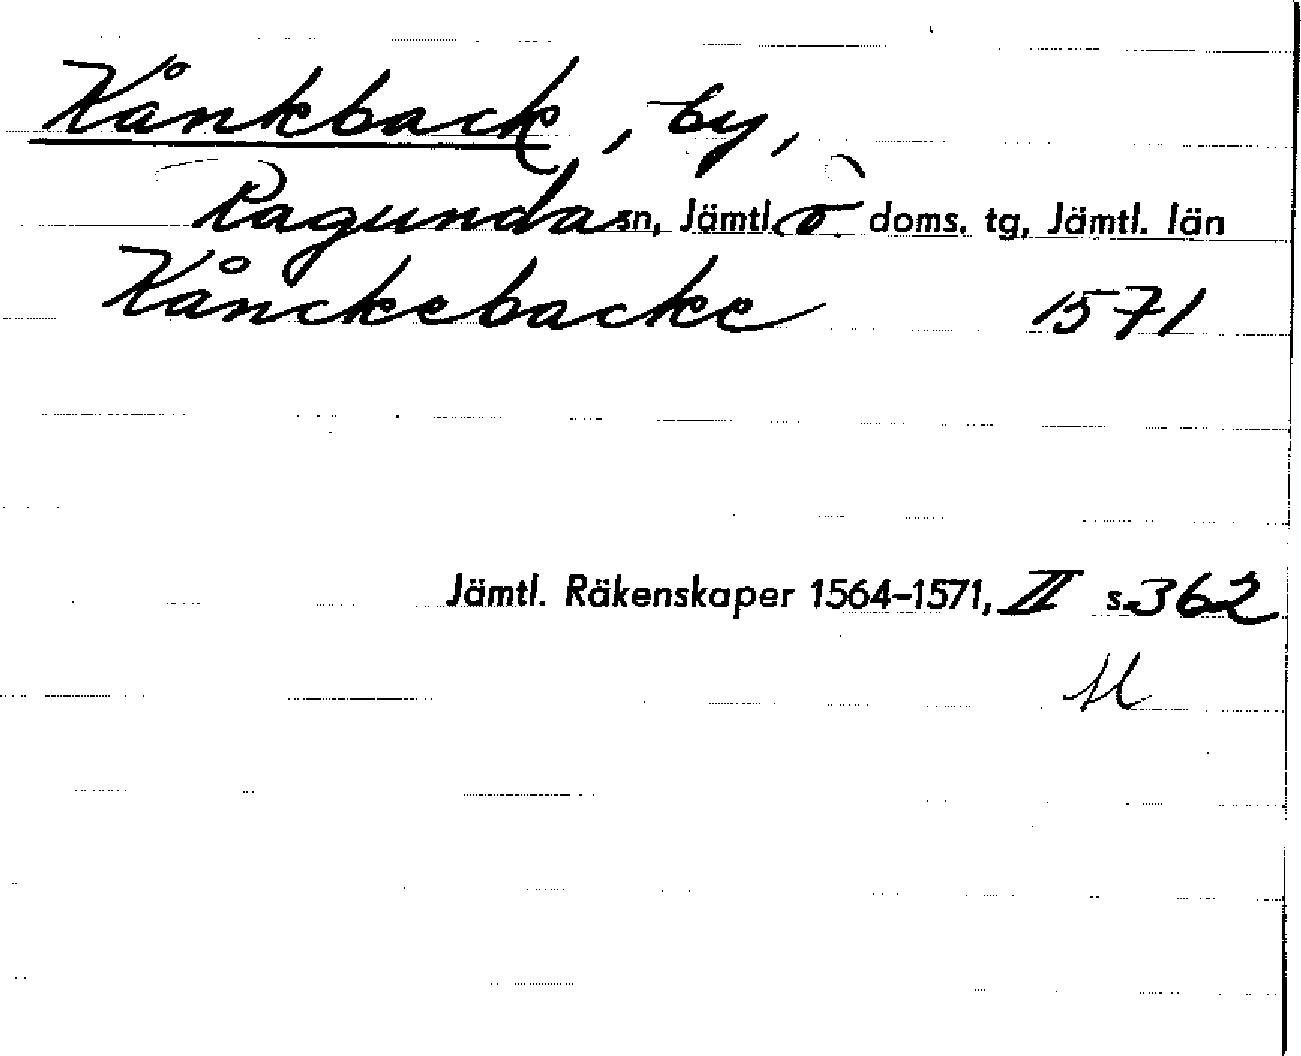 Kånkback, by,
Ragunda sn, Jämtl. ö. doms. tg, Jämtl. län
Kånckebacke 1571
Jämtl. Räkenskaper 1564-1571, II s. 362